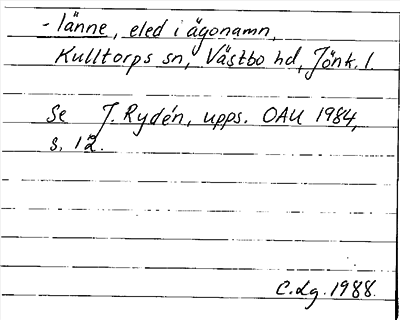 - länne, eled i ägonamn,
Kulltorps sn, Västbo hd, Jönk. l.
Se J. Rydén, upps. OAU 1984,
s. 12.
C. Lg. 1988.